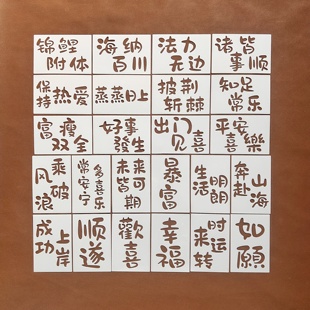 锦鲤
附体
海纳
百川
法力
无边
诸事
皆顺
保持
热爱
蒸蒸日上
披荆
斩棘
知足
常乐
富瘦
双全
好事
發生
出门
见喜
平安
喜樂
乘风
破浪
多喜乐
常安宁
未来
皆可期
暴富
生活
明朗
奔赴
山海
成功
上岸
顺遂
歡喜
幸福
时来
运转
如願